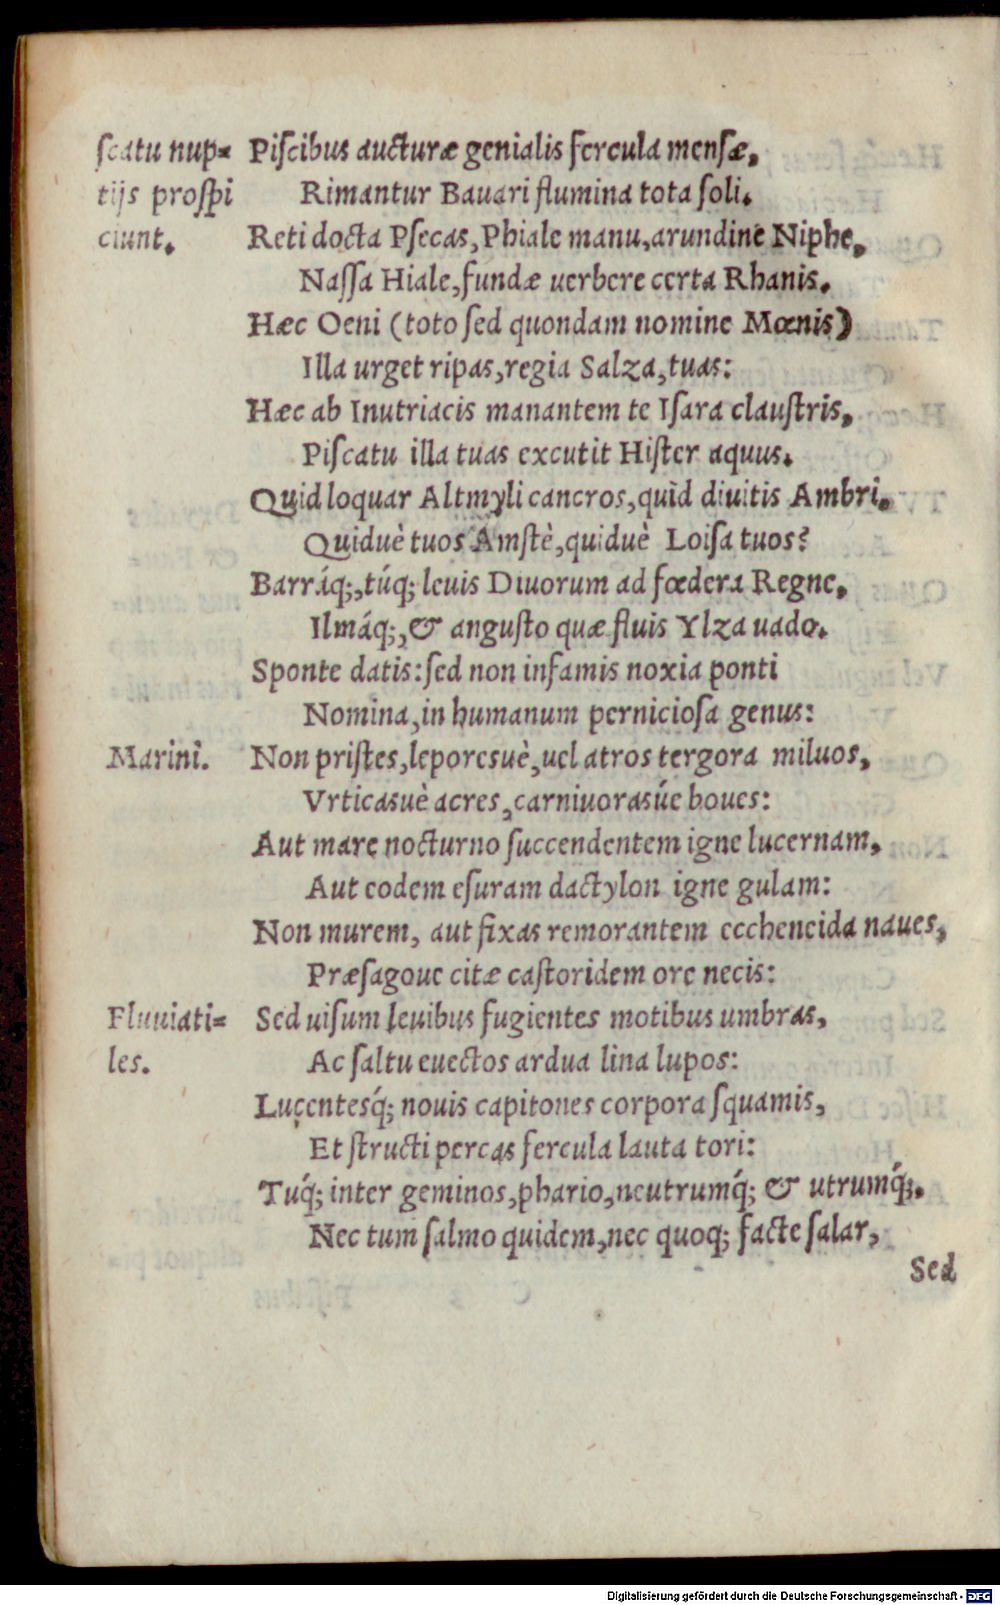 ſcatu nup=
tijs proſpi
ciunt.
Piſcibus aucturæ genialis fercula menſæ,
Rimantur Bauari flumina tota ſoli.
Reti docta Pſecas, Phiale manu, arundine Niphe,
Naſſa Hiale, fundæ uerbere certa Rhanis.
Hæc Oeni (toto ſed quondam nomine Mœnis)
Illa urget ripas, regia Salza, tuas:
Hæc ab Inutriacis manantem te Iſara clauſtris,
Piſcatu illa tuas excutit Hiſter aquus.
Quid loquar Altmyli cancros, quid diuitis Ambri,
Quiduè tuos Amſtè, quiduè Loiſa tuos?
Barráq;, túq; leuis Diuorum ad fœdera Regne,
Ilmáq;, & anguſto quæ fluis Ylza uado.
Sponte datis: ſed non infamis noxia ponti
Nomina, in humanum pernicioſa genus:
Marini.
Non priſtes, leporesuè, uel atros tergora miluos,
Vrticasuè acres, carniuorasúe boues:
Aut mare nocturno ſuccendentem igne lucernam,
Aut eodem eſuram dactylon igne gulam:
Non murem, aut fixas remorantem eccheneida naues,
Præſagoue citæ caſtoridem ore necis:
Fluuiati=
les.
Sed uiſum leuibus fugientes motibus umbras,
Ac ſaltu euectos ardua lina lupos:
Lucentesq́; nouis capitones corpora ſquamis,
Et ſtructi percas fercula lauta tori:
Tuq́; inter geminos, phario, neutrumq́; & utrumq́;.
Nec tum ſalmo quidem, nec quoq; facte ſalar,
Sed
Digitalisierung gefördert durch die Deutsche Forschungsgemeinschaft - DFG